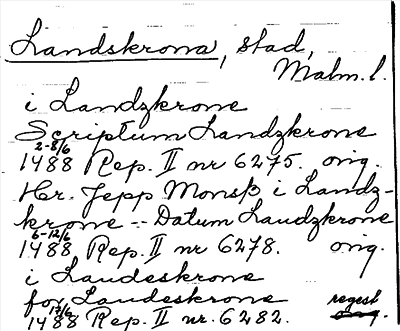 Landskrona, stad,
Malm.l.
i Landzkrone
Scriptum Landzkrone
2-8/6
1488 Rep. II nr 6275. orig.
Hr. Jepp Monsß i Landz-
krone -- Datum Landzkrone
6-12/6
1488 Rep. II nr 6278. orig.
i Laudeskrone
for Laudeskrone regest
17/6
1488 Rep. II nr. 6282.